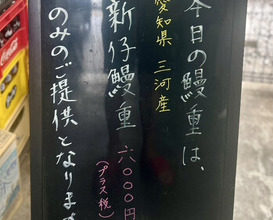 今日の鰻重は、
愛知県 三河産
新仔鰻重 六〇〇〇円
(プラス税)
のみのご提供となります